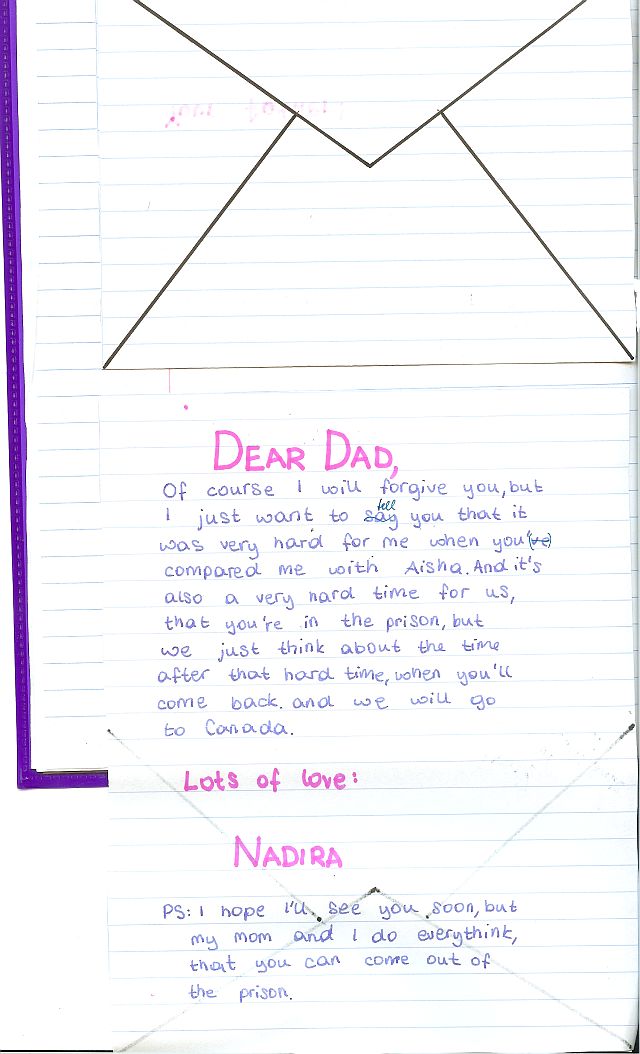 DEAR DAD,
Of course I will forgive you, but
tell
I just want to say you that it
was very hard for me when you('ve)
compared me with Aisha. And it's
also a very hard time for us,
that you're in the prison, but
we just think about the time
after that hard time, when you'll
come back. and we will go
to Canada.
Lots of love:
NADIRA
PS: I hope I'll see you soon, but
my mom and I do everythink,
that you can come out of
the prison.